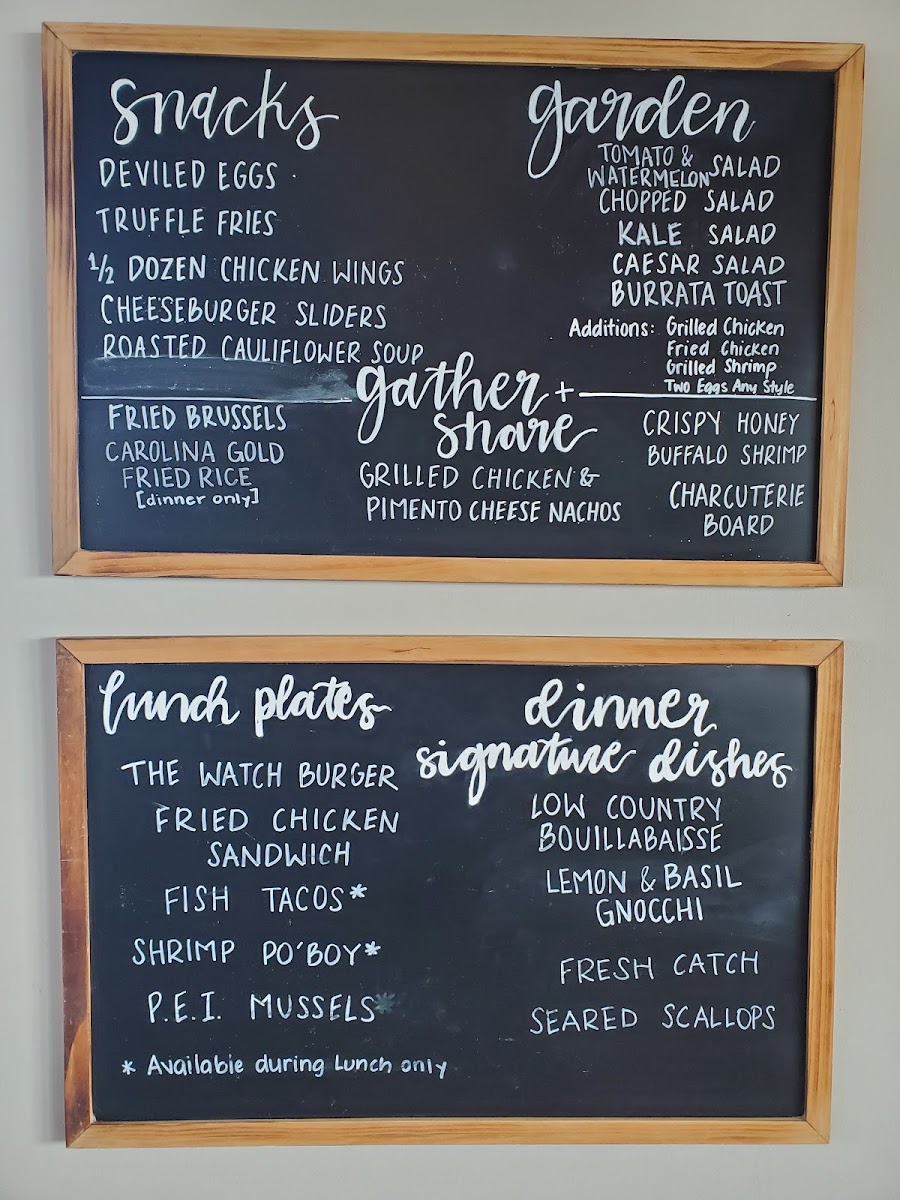 Snacks
DEVILED EGGS
TRUFFLE FRIES
1/2 DOZEN CHICKEN WINGS
CHEESEBURGER SLIDERS
ROASTED CAULIFLOWER SOUP
garden
TOMATO &
WATERMELON SALAD
CHOPPED SALAD
KALE SALAD
CAESAR SALAD
BURRATA TOAST
Additions: Grilled Chicken
Fried Chicken
Grilled Shrimp
Two Eggs Any Style
gather +
share
FRIED BRUSSELS
CAROLINA GOLD
FRIED RICE
[dinner only]
GRILLED CHICKEN &
PIMENTO CHEESE NACHOS
CRISPY HONEY
BUFFALO SHRIMP
CHARCUTERIE
BOARD
lunch plates
THE WATCH BURGER
FRIED CHICKEN
SANDWICH
FISH TACOS*
SHRIMP PO'BOY*
P.E.I. MUSSELS*
* Available during Lunch only
dinner
signature dishes
LOW COUNTRY
BOUILLABAISSE
LEMON & BASIL
GNOCCHI
FRESH CATCH
SEARED SCALLOPS